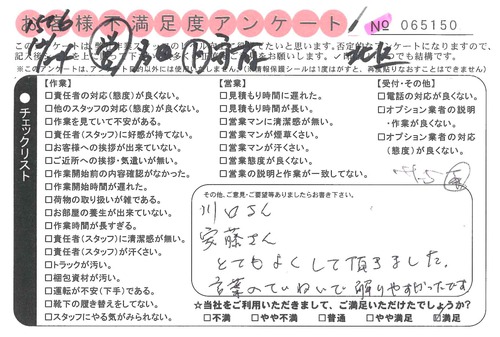 お客様不満足度アンケート
No 065150
✓チェックリスト
【作業】
□責任者の対応(態度)が良くない。
□他のスタッフの対応(態度)が良くない。
□作業を見ていて不安がある。
□責任者(スタッフ)に好感が持てない。
□お客様への挨拶が出来ていない。
□ご近所への挨拶・気遣いが無い。
□作業開始前の内容確認がなかった。
□作業開始時間が遅れた。
□荷物の取り扱いが雑である。
□お部屋の養生が出来ていない。
□作業時間が長すぎる。
□責任者(スタッフ)に清潔感が無い。
□責任者(スタッフ)が汗くさい。
□トラックが汚い。
□梱包資材が汚い。
□運転が不安(下手)である。
□靴下の履き替えをしてない。
□スタッフにやる気がみられない。
【営業】
□見積もり時間に遅れた。
□見積もり時間が長い。
□営業マンに清潔感が無い。
□営業マンが煙草くさい。
□営業マンが汗くさい。
□営業態度が良くない。
□営業の説明と作業が一致してない。
【受付・その他】
□電話の対応が良くない。
□オプション業者の説明
・作業が良くない。
□オプション業者の対応
(態度)が良くない。
その他、ご意見・ご要望等ありましたらお書き下さい。
川口さん
安藤さん
とてもよくして頂きました。
言葉のていねいで解りやすかったです
☆当社をご利用いただきまして、ご満足いただけたでしょうか?
□不満 □やや不満 □普通 □やや満足 ☑満足